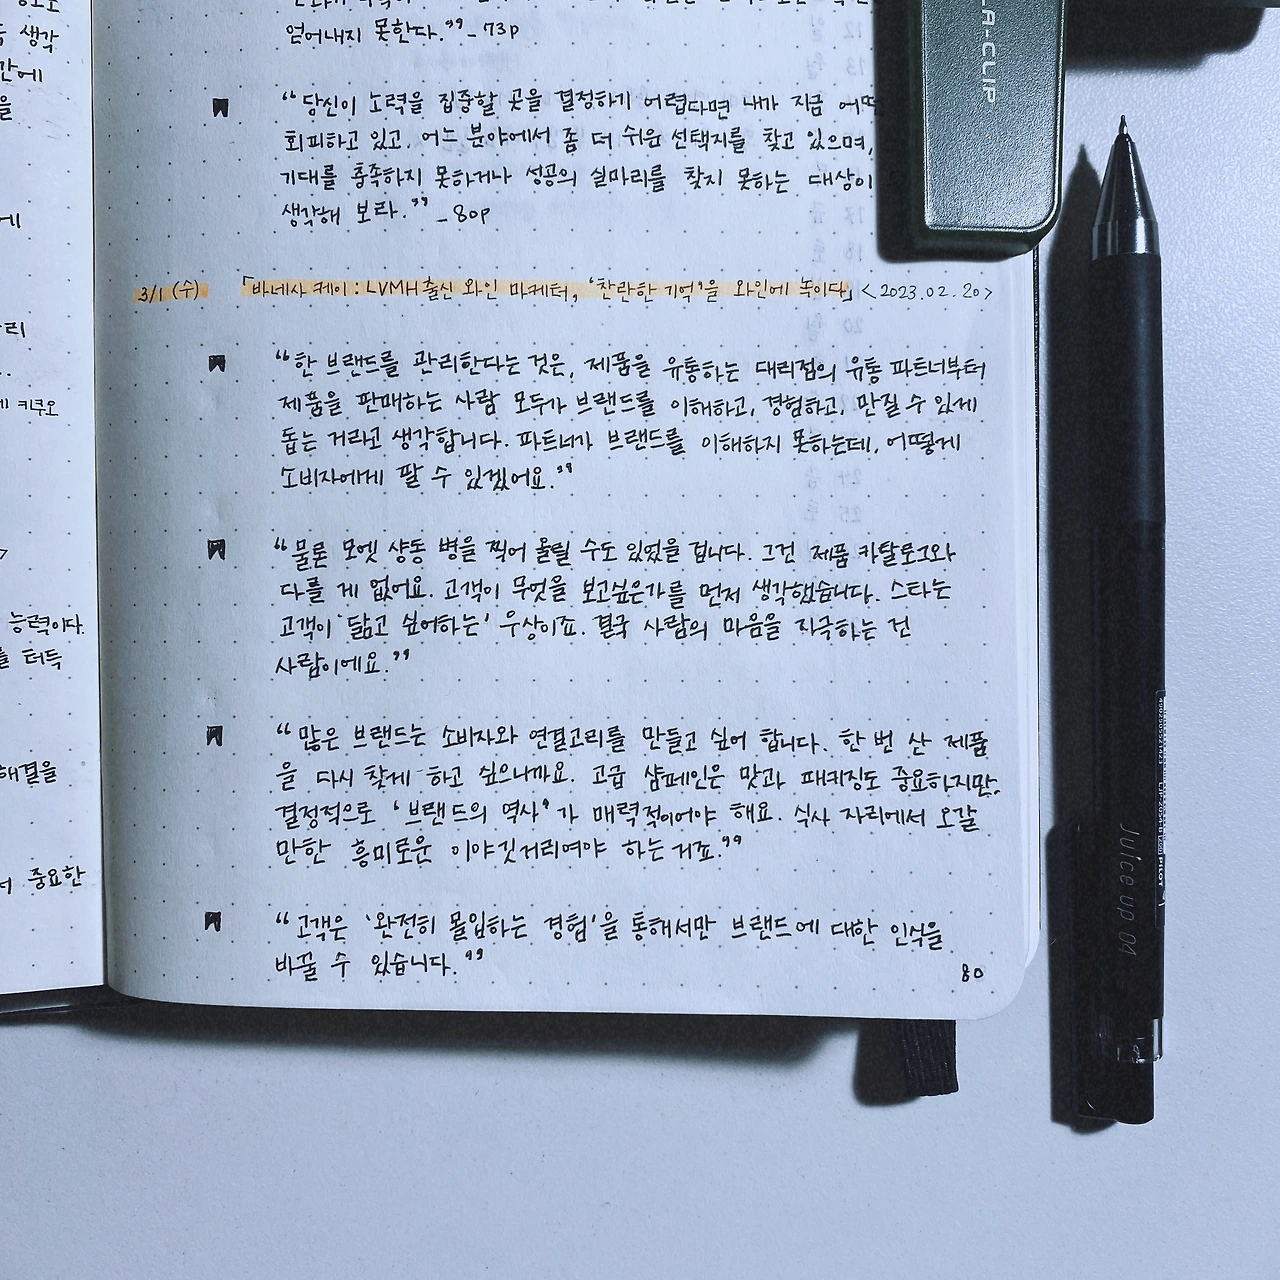 얻어내지 못한다.”_ 73p
“당신이 노력을 집중할 곳을 결정하기 어렵다면 내가 지금
회피하고 있고, 어느 분야에서 좀 더 쉬운 선택지를 찾고 있으며,
기대를 충족하지 못하거나 성공의 실마리를 찾지 못하는 대상이
생각해 보라.”_80p
3/1 (수) 「바네사 케이 : LVMH 출신 와인 마케터, ‘찬란한 기억’을 와인에 녹이다」 <2023.02.20>
“한 브랜드를 관리한다는 것은, 제품을 유통하는 대리점의 유통 파트너부터
제품을 판매하는 사람 모두가 브랜드를 이해하고, 경험하고, 만질 수 있게
돕는 거라고 생각합니다. 파트너가 브랜드를 이해하지 못하는데, 어떻게
소비자에게 팔 수 있겠어요.”
“물론 모엣 샹동 병을 찍어 올릴 수도 있었을 겁니다. 그건 제품 카탈로그와
다를 게 없어요. 고객이 무엇을 보고싶은가를 먼저 생각했습니다. 스타는
고객이 ‘닮고 싶어하는’ 우상이죠. 결국 사람의 마음을 자극하는 건
사람이에요.”
“많은 브랜드는 소비자와 연결고리를 만들고 싶어 합니다. 한 번 산 제품
을 다시 찾게 하고 싶으니까요. 고급 샴페인은 맛과 패키징도 중요하지만,
결정적으로 ‘브랜드의 역사’가 매력적이어야 해요. 식사 자리에서 오갈
만한 흥미로운 이야깃거리여야 하는거죠.”
“고객은 ‘완전히 몰입하는 경험’을 통해서만 브랜드에 대한 인식을
바꿀 수 있습니다.”
80
생각
간에
을
에
키쿠오
능력이다.
를 터득
해결을
중요한
LA-CLIP
PILOT
Juice up 04